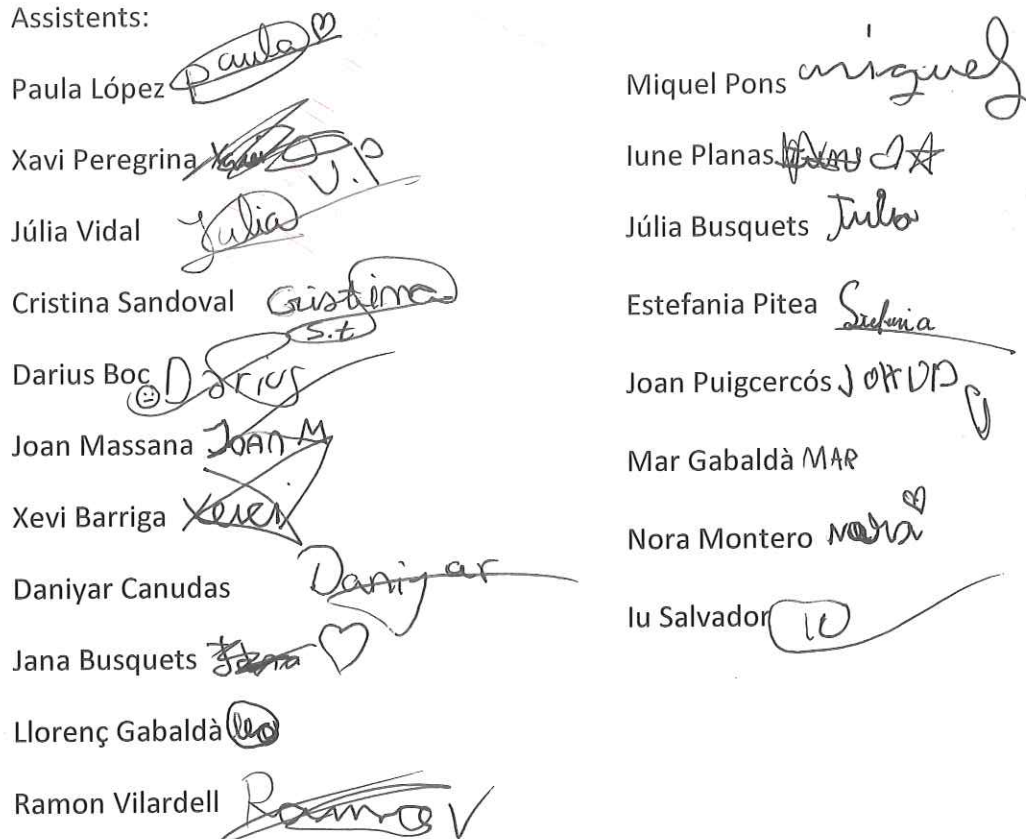 Assistents:
Paula López paula
Xavi Peregrina Xavi
Júlia Vidal Julia V.P
Cristina Sandoval Cristina S.t
Darius Boc Darius
Joan Massana JOAN M
Xevi Barriga Xevi
Daniyar Canudas Daniyar
Jana Busquets Jana
Llorenç Gabaldà
Ramon Vilardell Ramon V
Miquel Pons miquel
Iune Planas
Júlia Busquets Julia
Estefania Pitea Stefania
Joan Puigcercós JOAN P
Mar Gabaldà MAR
Nora Montero Nora
Iu Salvador IU